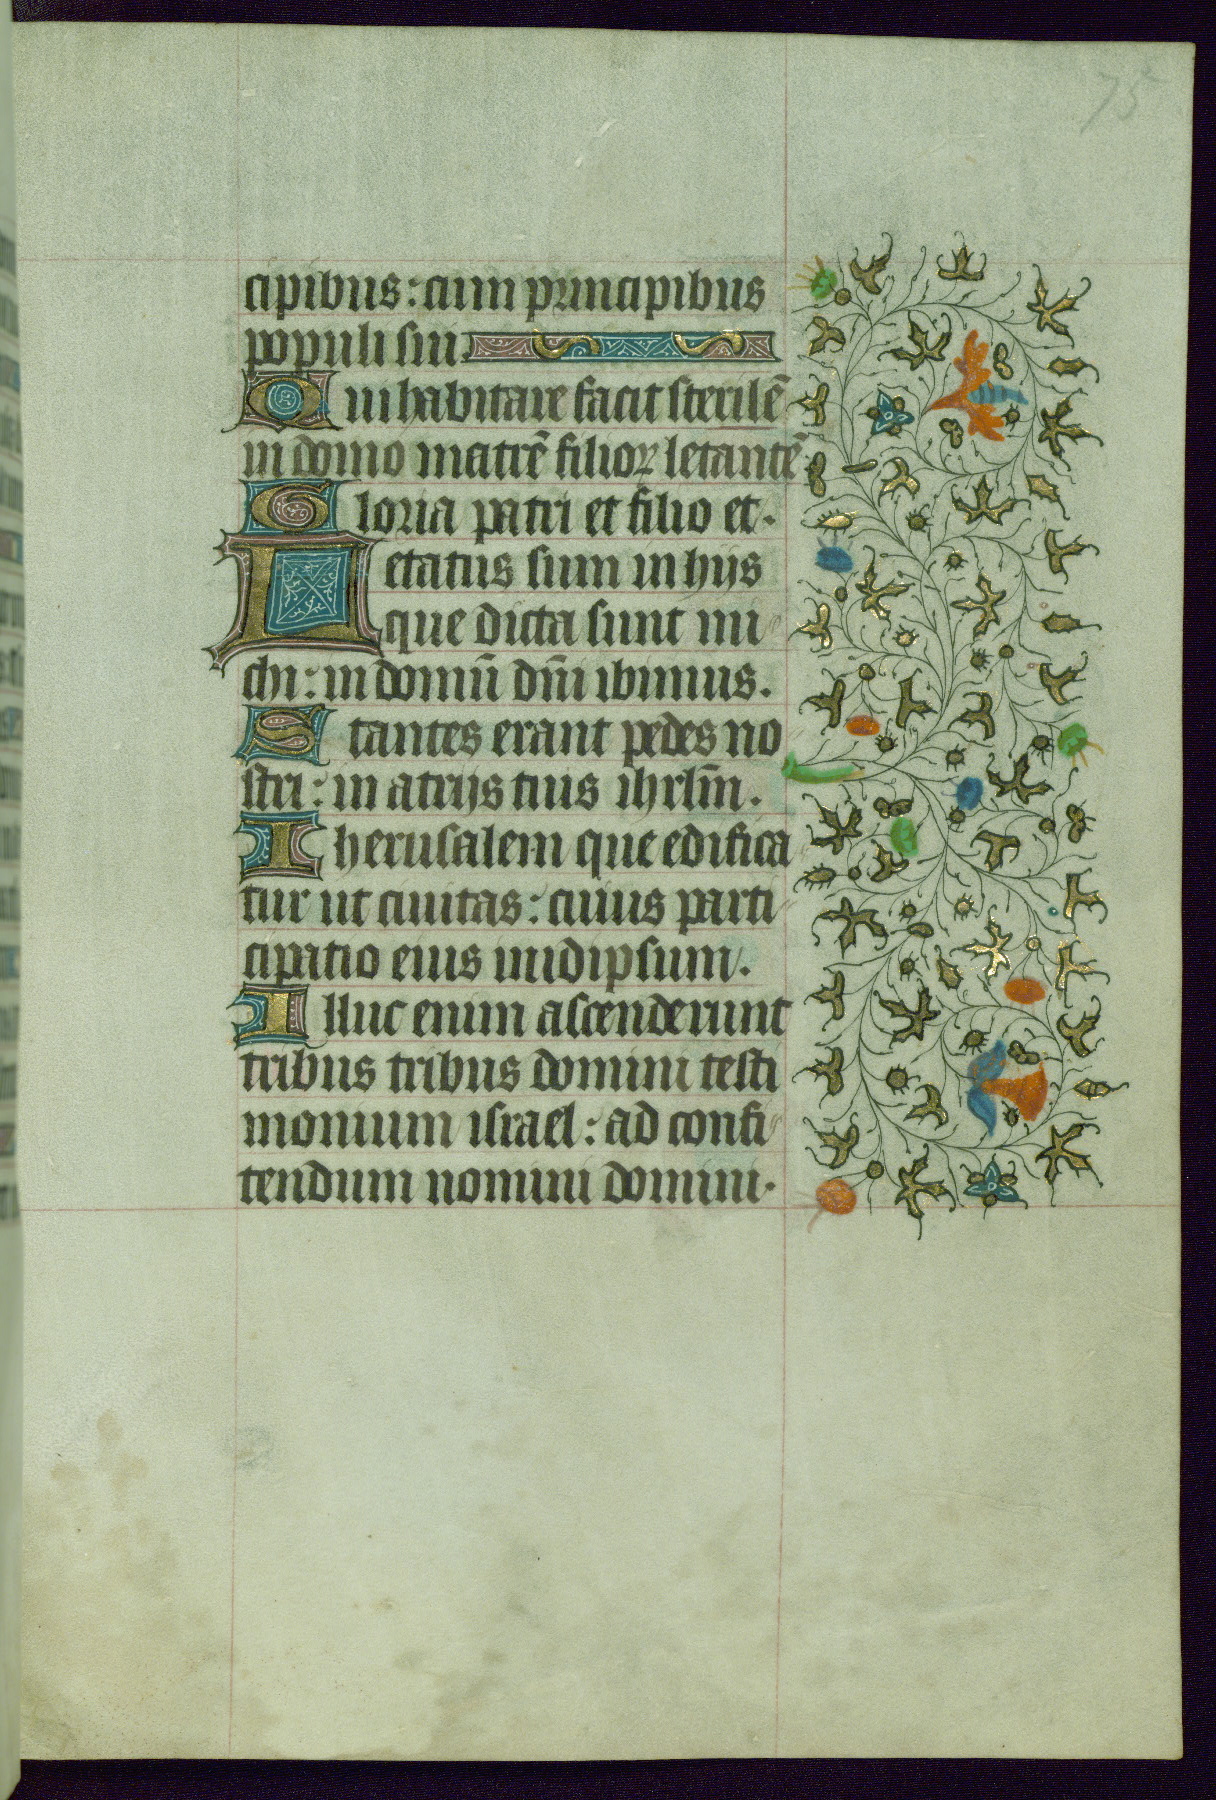 75
cipibus: cum principibus
populi sui.
Qui habitare facit sterilē
in domo matrē filioꝝ letantē
Gloria patri et filio et.
Letatus sum in hijs
que dicta sunt mi
chi: in domū dn̄i ibimus.
Stantes erant pedes no
stri: in atrijs tuis ihrl̄m.
Iherusalem que edifica
tur ut ciuitas: cuius parti
cipatio eius inidipsum.
Illuc enim ascenderunt
tribus tribus domini testi
monium israel: ad confi
tendum nomini domini.